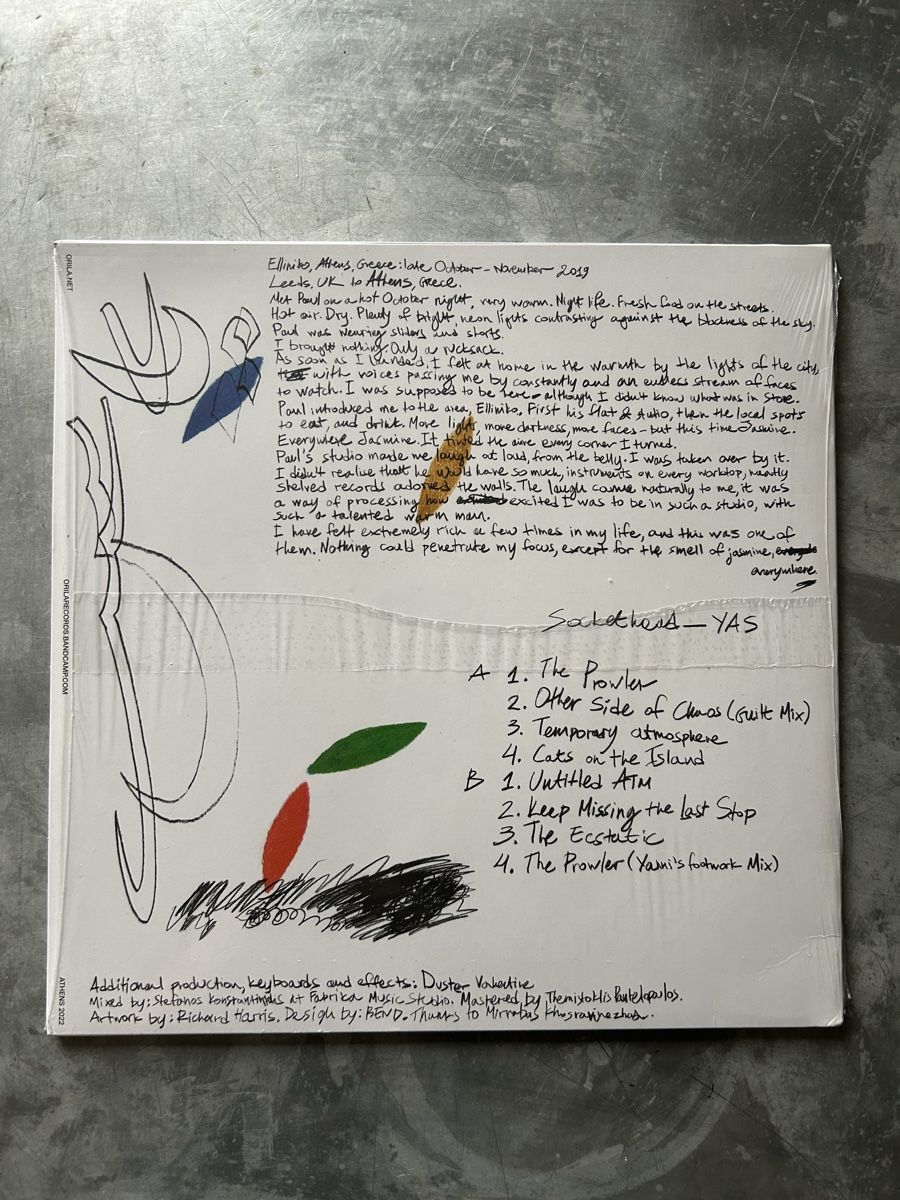 ORILA.NET
ORILARECORDS.BANDCAMP.COM
ATHENS 2022
Elliniko, Athens, Greece: late October – November 2019
Leeds, UK to Athens, Grece.
Met Paul on a hot October night, very warm. Night life. Fresh food on the streets.
Hot air. Dry. Plenty of bright, neon lights contrasting against the blackness of the sky.
Paul was wearing sliders and shorts.
I brought nothing. Only a rucksack.
As soon as I landed, I felt at home in the warmth by the lights of the city,
with voices passing me by constantly and an endless stream of faces
to watch. I was supposed to be here – although I didn't know what was in store.
Paul introduced me to the area, Elliniko. First his flat & studio, then the local spots
to eat, and drink. More light, more darkness, more faces – but this time Jasmine.
Everywhere Jasmine. It tinted the air every corner I turned.
Paul's studio made me laugh at loud, from the belly. I was taken over by it.
I didn't realise that he would have so much, instruments on every worktop, neatly
shelved records adorned the walls. The laugh came naturally to me, it was
a way of processing how excited I was to be in such a studio, with
such a talented warm man.
I have felt extremely rich a few times in my life, and this was one of
them. Nothing could penetrate my focus, except for the smell of jasmine,
everywhere.
Sockethead – YAS
A 1. The Prowler
2. Other Side of Chaos (Guilt Mix)
3. Temporary atmosphere
4. Cats on the Island
B 1. Untitled ATM
2. Keep Missing the Last Stop
3. The Ecstatic
4. The Prowler (Yanni's footwork Mix)
Additional production, keyboards and effects: Duster Valentine
Mixed by: Stefanos Konstantinidis at Fabrika Music Studio. Mastered by Themistoklis Pantelopoulos.
Artwork by: Richard Harris. Design by: BEND. Thanks to Mirrabas Khosravinezhad.